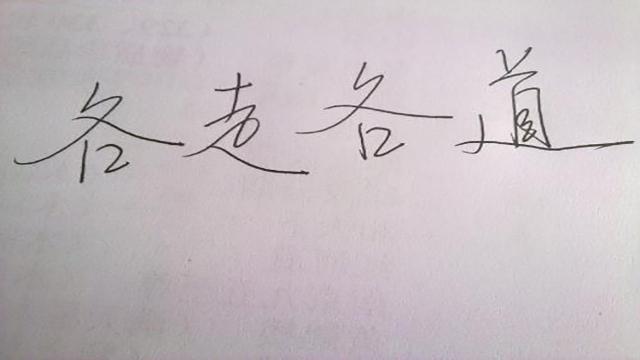 各走各道